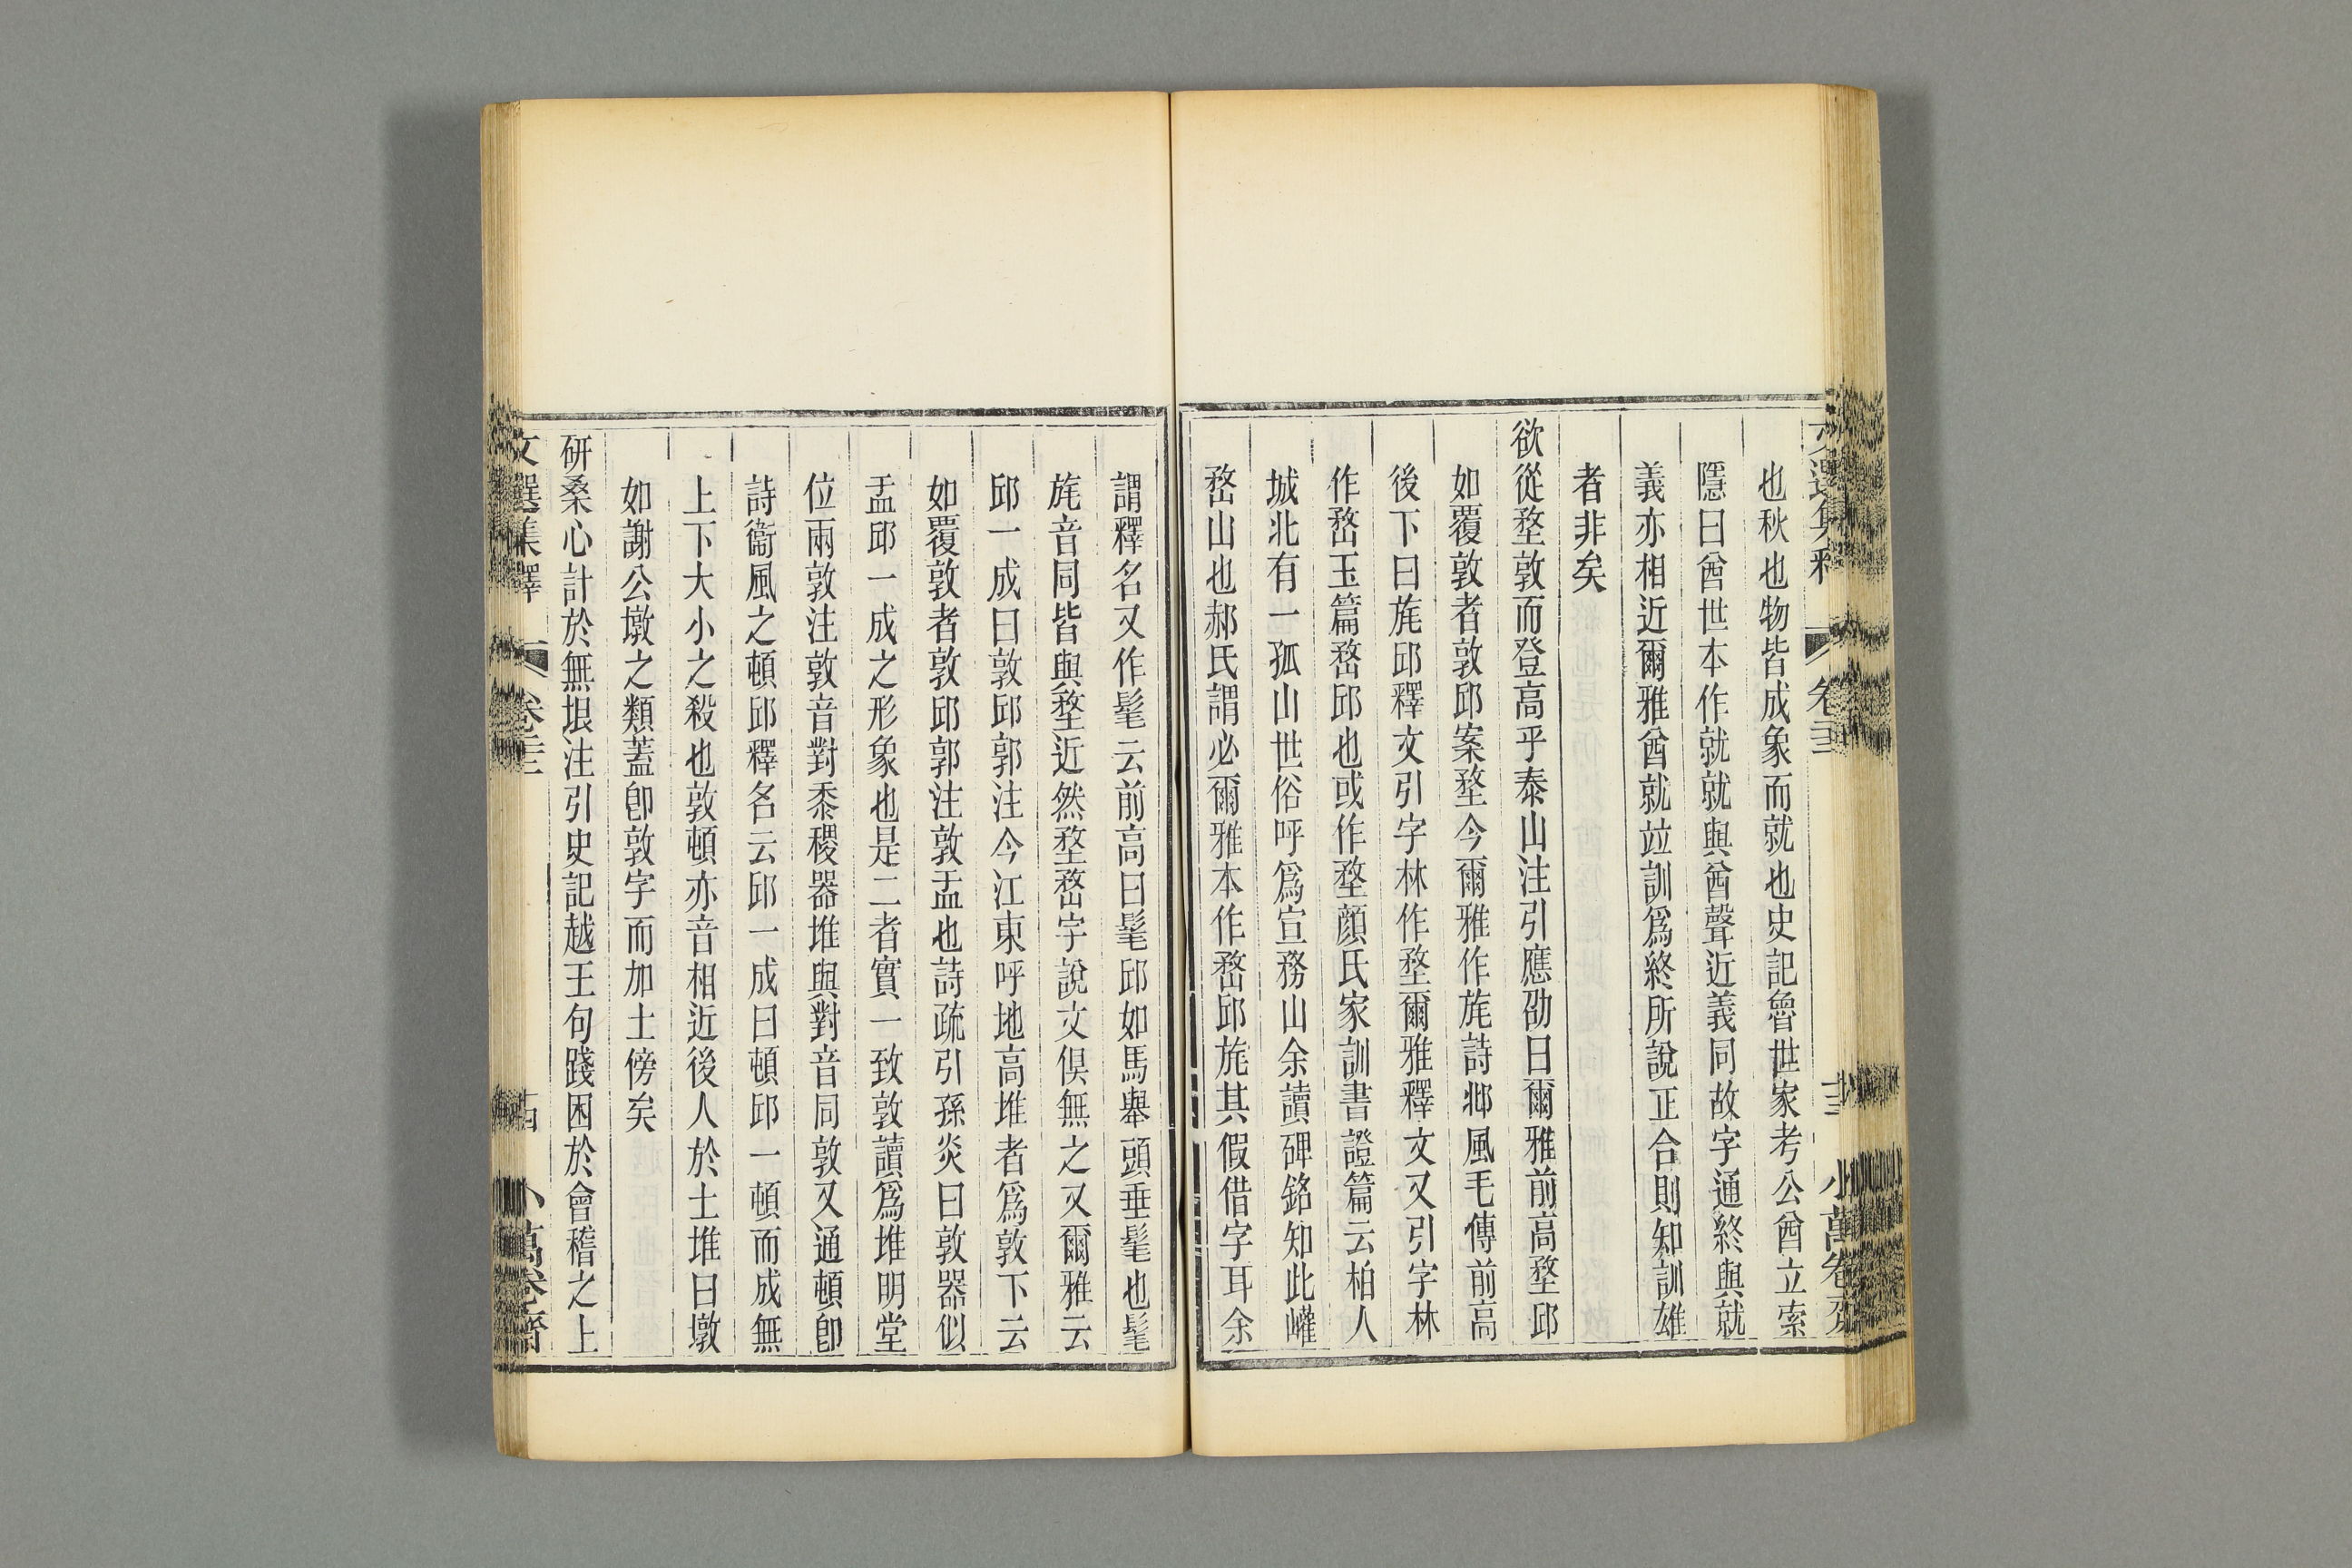 文選集釋 卷二十三 十三 小萬卷齋
也秋也物皆成象而就也史記魯世家考公酋立索
隱曰酋世本作就就與酋聲近義同故字通終與就
義亦相近爾雅酋就竝訓爲終所說正合則知訓雄
者非矣
欲從堥敦而登高乎泰山注引應劭曰爾雅前高堥邱
如覆敦者敦邱案堥今爾雅作旄詩邶風毛傳前高
後下曰旄邱釋文引字林作堥爾雅釋文又引字林
作嵍玉篇嵍邱也或作堥顏氏家訓書證篇云柏人
城北有一孤山世俗呼爲宣務山余讀碑銘知此巏
嵍山也郝氏謂必爾雅本作嵍邱旄其假借字耳余
謂釋名又作髦云前高曰髦邱如馬舉頭垂髦也髦
旄音同皆與堥近然堥嵍字說文俱無之又爾雅云
邱一成曰敦邱郭注今江東呼地高堆者爲敦下云
如覆敦者敦邱郭注敦盂也詩疏引孫炎曰敦器似
盂邱一成之形象也是二者實一致敦讀爲堆明堂
位兩敦注敦音對黍稷器堆與對音同敦又通頓卽
詩衞風之頓邱釋名云邱一成曰頓邱一頓而成無
上下大小之殺也敦頓亦音相近後人於土堆曰墩
如謝公墩之類蓋卽敦字而加土傍矣
研桑心計於無垠注引史記越王句踐困於會稽之上
文選集釋 卷二十三 十四 小萬卷齋